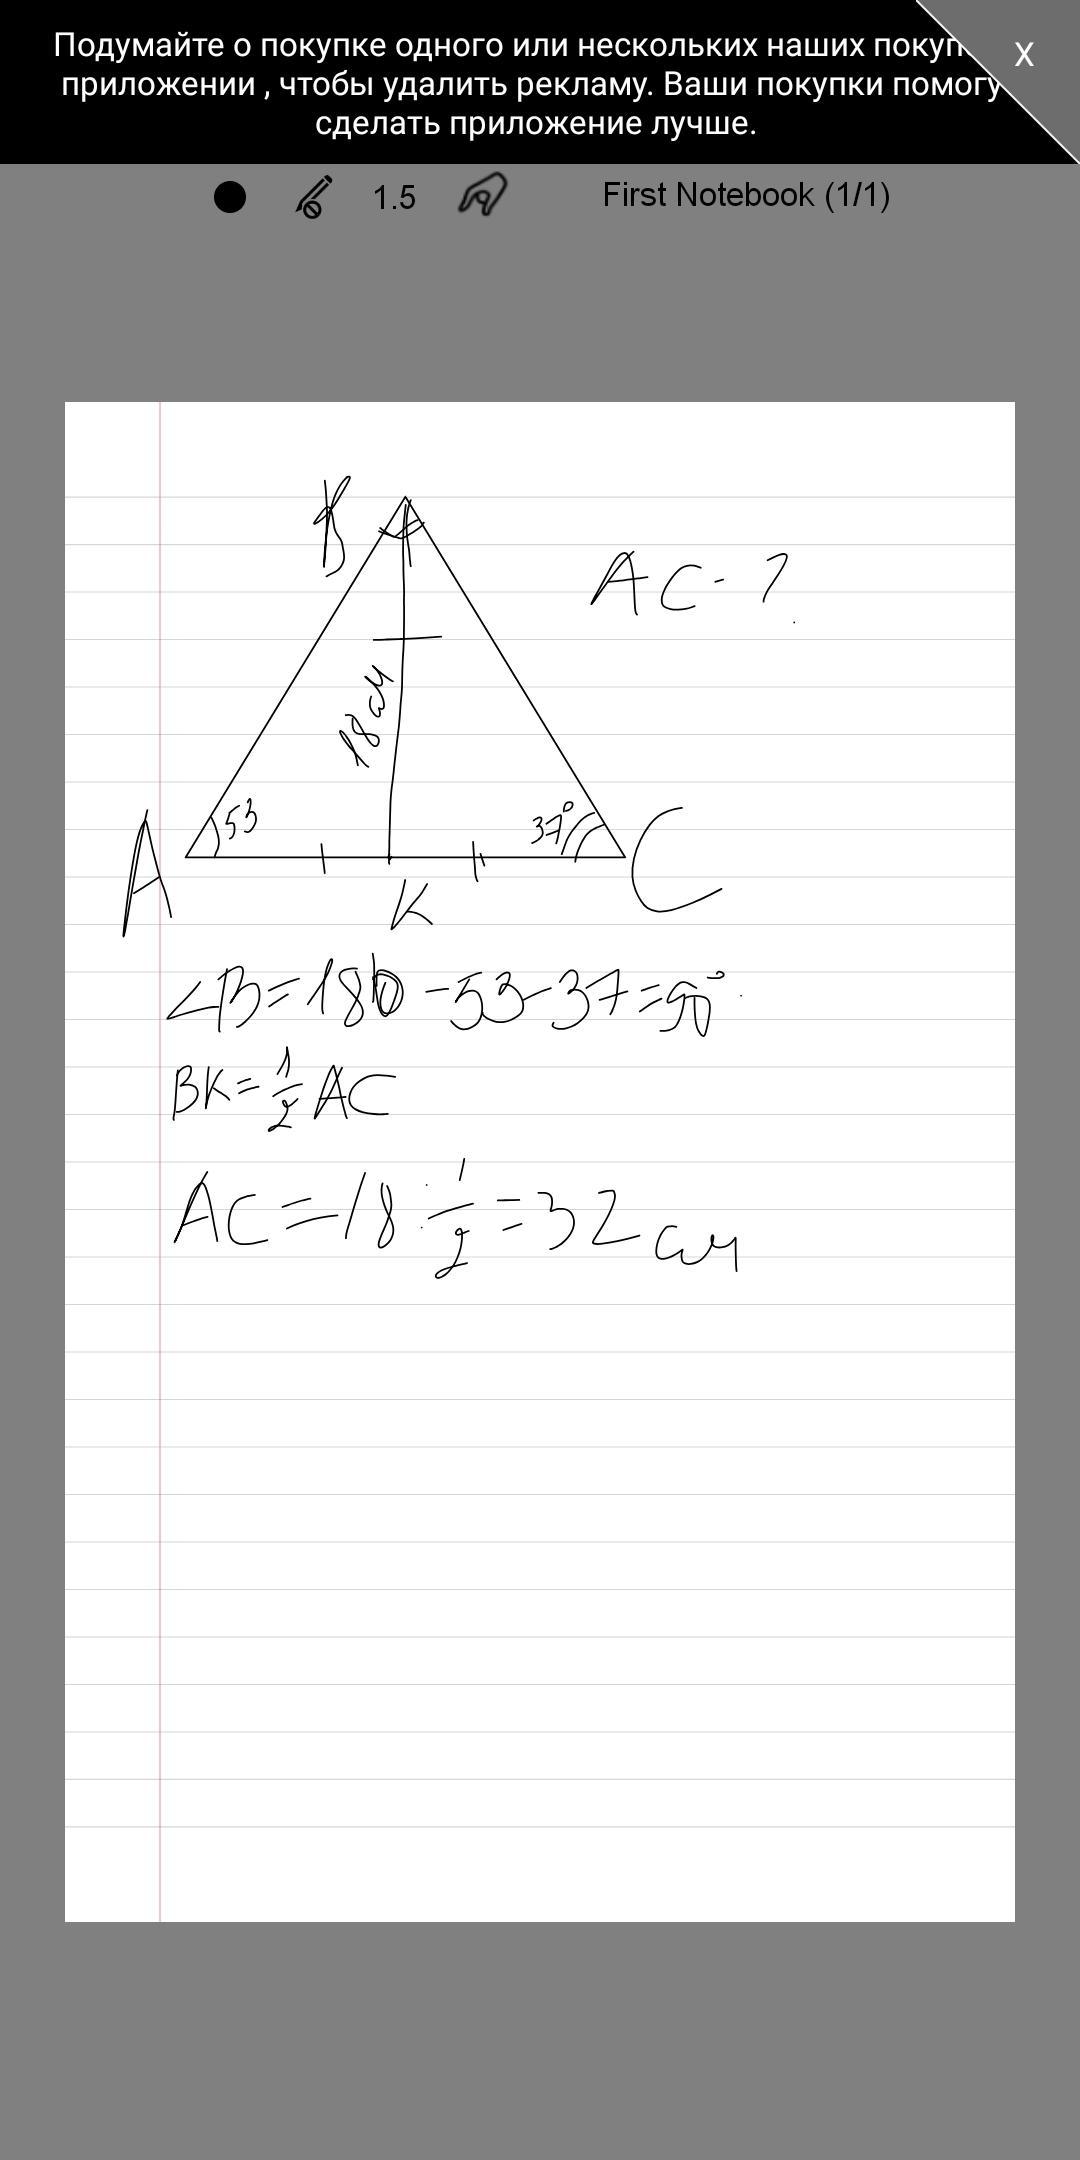 Подумайте о покупке одного или нескольких наших покуп
приложении , чтобы удалить рекламу. Ваши покупки помогу
сделать приложение лучше.
X
1.5
First Notebook (1/1)
B
AC - ?
18 см
A
53
37°
C
K
∠B = 180 - 53 - 37 = 90°
BK = 1/2 AC
AC = 18 : 1/2 = 32 см